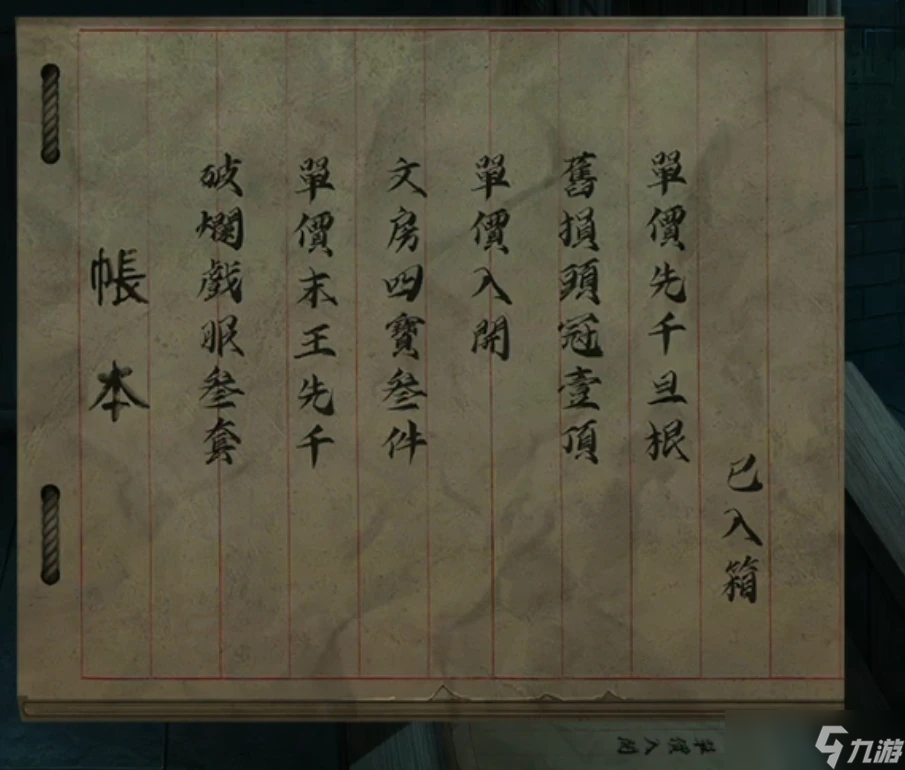 帳本
破爛戯服叁套
單價末王先千
文房四寶叁件
單價入開
舊損頭冠壹頂
單價先千旦根
已入箱
單價入開
九游